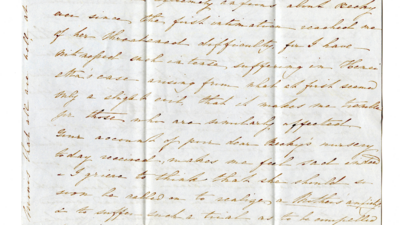 about Becky
ever since the first intimation reached me
of her threatened difficulty for I have
witnessed such intense suffering in Henri
etta's case arising from what at first seemed
only a slight evil, that it makes me tremble
for those who are similarly affected
Your account of poor dear Becky's nursery
today received, makes me feel sad indeed
- I grieve to think that she should so
soon be called on to realize a Mother's anxieties
& to suffer such a trial as to be compelled